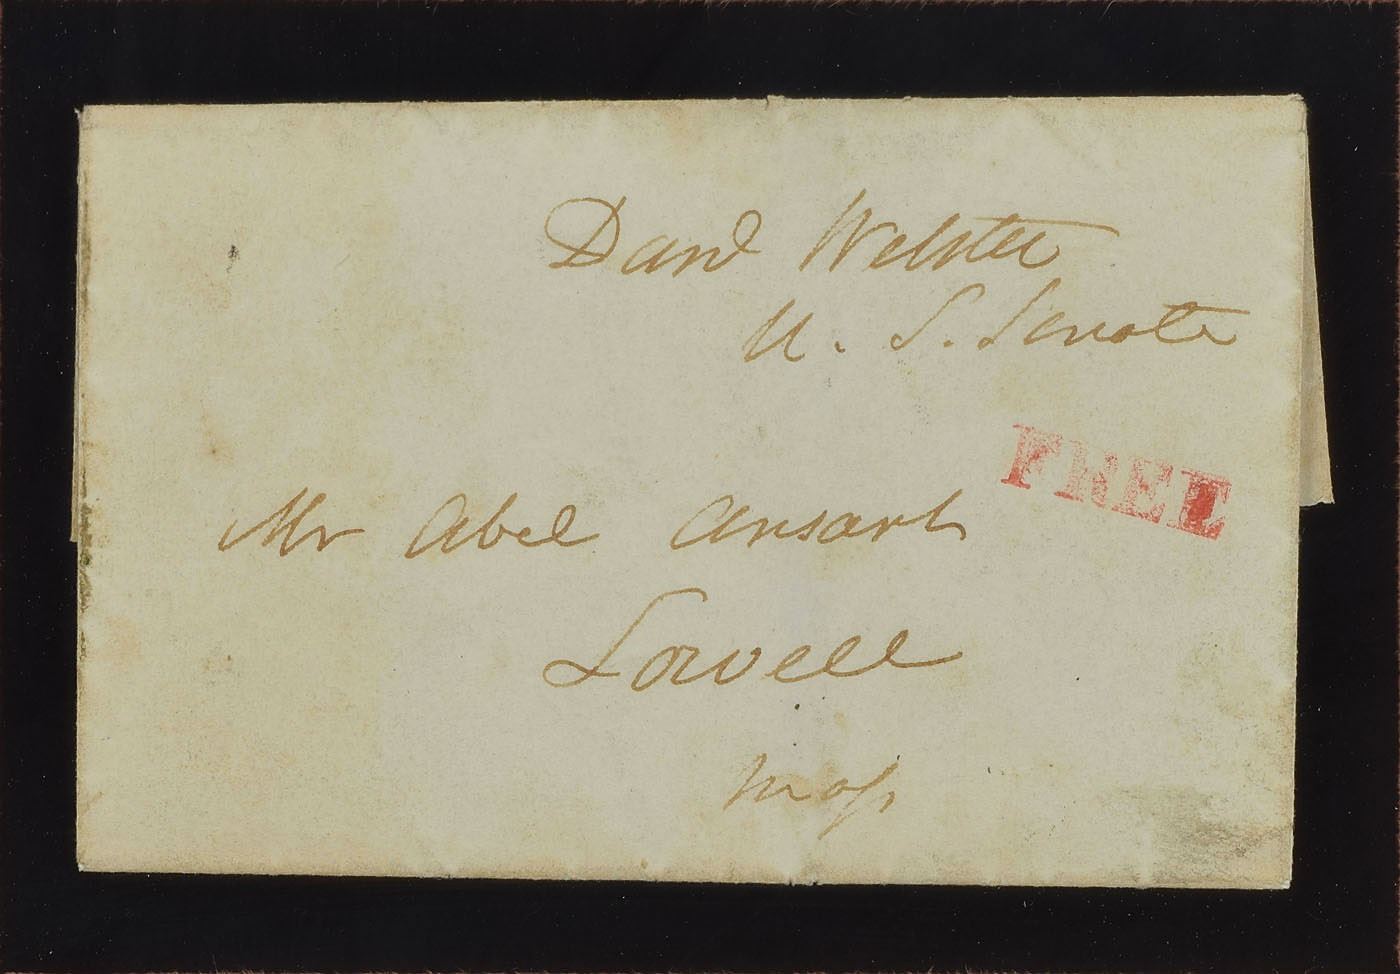 Danl Webster
U. S. Senate
FREE
Mr Abel Ansart
Lowell
Mass